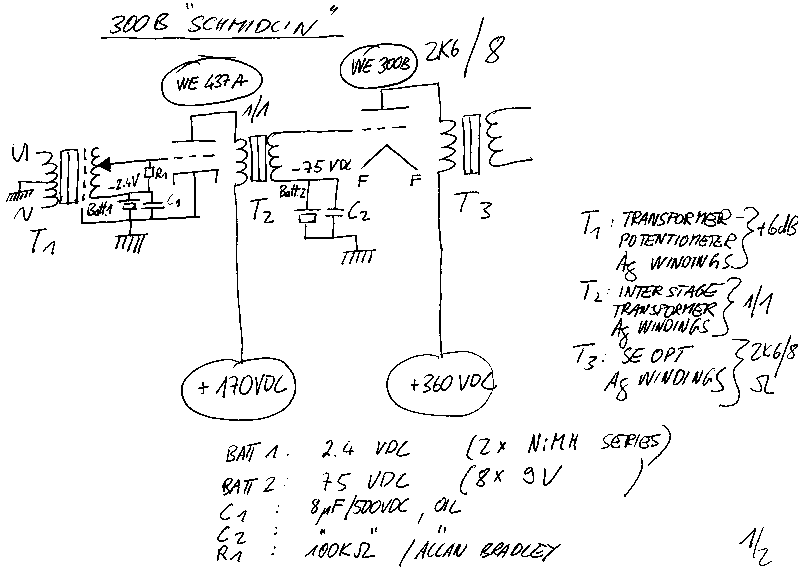 300B "SCHMIDLIN"
WE 437A
WE 300B
2K6/8
1/1
VI
R1
-2.4V
Batt1
C1
N
T1
-75 VDC
Batt2
C2
T2
F
F
T3
+170VDC
+360VDC
T1: TRANSFORMER
POTENTIOMETER
Ag WINDINGS
+6dB
T2: INTERSTAGE
TRANSFORMER
Ag WINDINGS
1/1
T3: SE OPT
Ag WINDINGS
2K6/8
Ω
BATT 1: 2.4 VDC (2x NiMH SERIES)
BATT 2: 75 VDC (8x 9V " )
C1 : 8µF/500VDC, OIL
C2 : " " "
R1 : 100KΩ / ALLAN BRADLEY
1/2